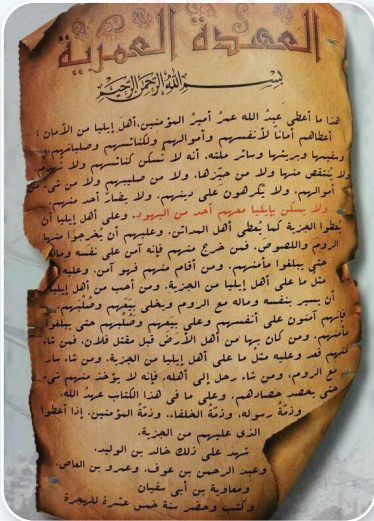 العهدة العمرية
بسم الله الرحمن الرحيم
هذا ما أعطى عبدُ الله عمرُ أميرُ المؤمنين، أهلَ إيليا من الأمان :
أعطاهم أماناً لأنفسهم وأموالهم ولكنائسهم وصلبانهم،
وسقيمها وبريئها وسائر ملتها، أنه لا تُسكن كنائسهم ولا تُهدم،
ولا يُنتقص منها ولا من حيّزها، ولا من صليبهم ولا من شيء من
أموالهم، ولا يُكرهون على دينهم، ولا يضارّ أحد منهم،
ولا يسكن بإيليا معهم أحد من اليهود، وعلى أهل إيليا أن
يُعطوا الجزية كما يُعطي أهل المدائن، وعليهم أن يُخرجوا منها
الروم واللصوص، فمن خرج منهم فإنه آمن على نفسه وماله
حتى يبلغوا مأمنهم، ومن أقام منهم فهو آمن، وعليه
مثل ما على أهل إيليا من الجزية، ومن أحب من أهل إيليا
أن يسير بنفسه وماله مع الروم ويخلي بِيَعهم وصُلُبهم،
فإنهم آمنون على أنفسهم وعلى بِيَعهم وصُلُبهم حتى يبلغوا
مأمنهم، ومن كان بها من أهل الأرض قبل مقتل فلان، فمن شاء
منهم قعد وعليه مثل ما على أهل إيليا من الجزية، ومن شاء سار
مع الروم، ومن شاء رجل إلى أهله، فإنه لا يؤخذ منهم شيء
حتى يحصد حصادهم، وعلى ما في هذا الكتاب عهدُ الله،
وذمّةُ رسوله، وذمّة الخلفاء، وذمّة المؤمنين، إذا أعطوا
الذي عليهم من الجزية.
شهد على ذلك خالد بن الوليد،
وعبد الرحمن بن عوف، وعمرو بن العاص،
ومعاوية بن أبي سفيان
وكتب وحضر سنة خمس عشرة للهجرة